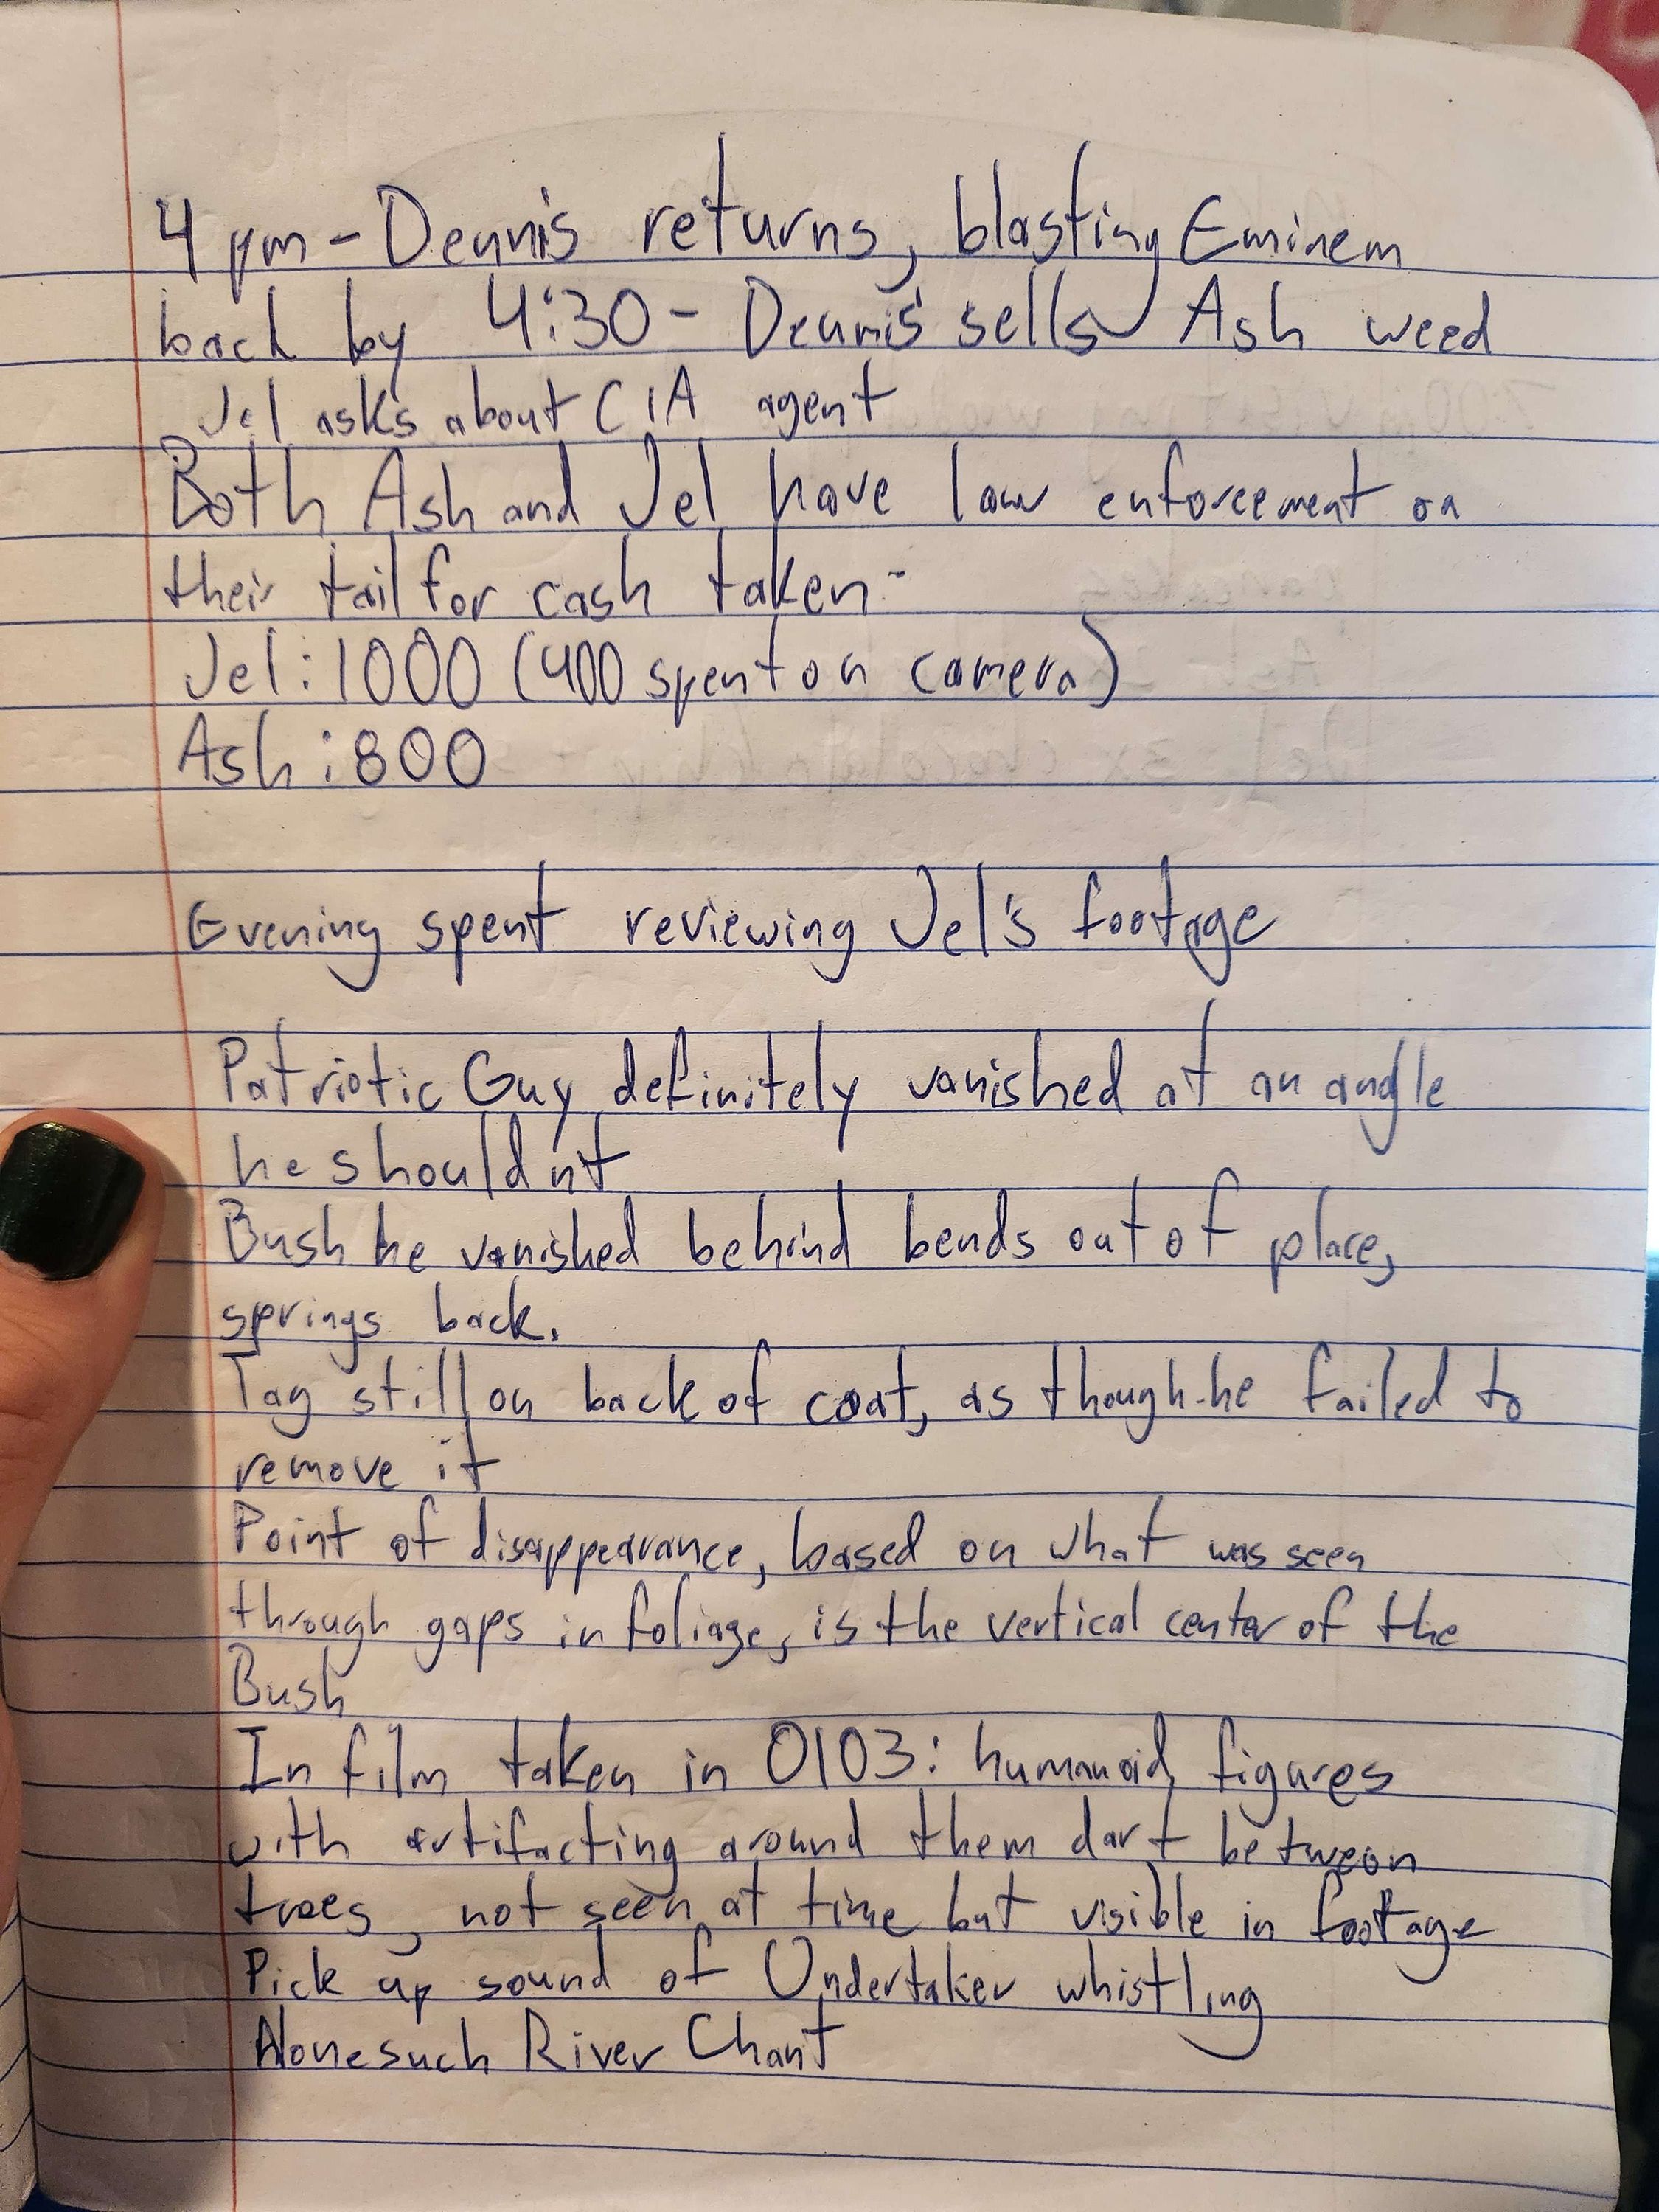 4 pm - Dennis returns, blasting Eminem
back by 4:30 - Dennis sells Ash weed
Jel asks about CIA agent
Both Ash and Jel have law enforcement on
their tail for cash taken -
Jel: 1000 (400 spent on camera)
Ash: 800
Evening spent reviewing Jel's footage
Patriotic Guy definitely vanished at an angle
he shouldnt
Bush he vanished behind bends out of place,
springs back.
Tag still on back of coat, as though he failed to
remove it
Point of disappearance, based on what was seen
through gaps in foliage, is the vertical center of the
Bush
In film taken in 0103: humanoid figures
with artifacting around them dart between
trees, not seen at time but visible in footage
Pick up sound of Undertaker whistling
Nonesuch River Chant